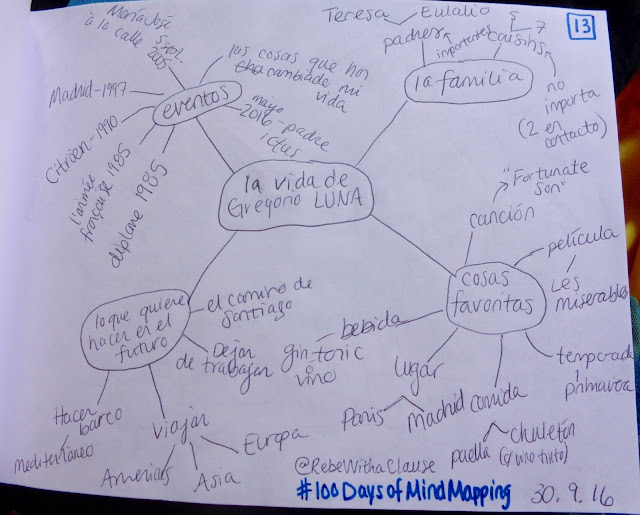 13
la vida de
Gregorio LUNA
eventos
las cosas que han
cambiado mi
vida
mayo
2016 - padre
ictus
María José
a la calle
sept.
2015
Madrid - 1997
Citröen - 1990
l'armée
française 1985
diplome 1985
la familia
padres
Teresa
Eulalio
importantes
cousins
5
7
no
importa
(2 en
contacto)
cosas
favoritas
canción
"Fortunate
Son"
película
Les
Miserables
temporada
primavera
comida
paella
chuleton
(y vino tinto)
lugar
Paris
Madrid
bebida
gin tonic
vino
lo que quiere
hacer en el
futuro
el camino de
Santiago
Dejar
de trabajar
viajar
Americas
Asia
Europa
Hacer
barco
mediterráneo
@RebeWithaClause
#100DaysofMindMapping
30.9.16